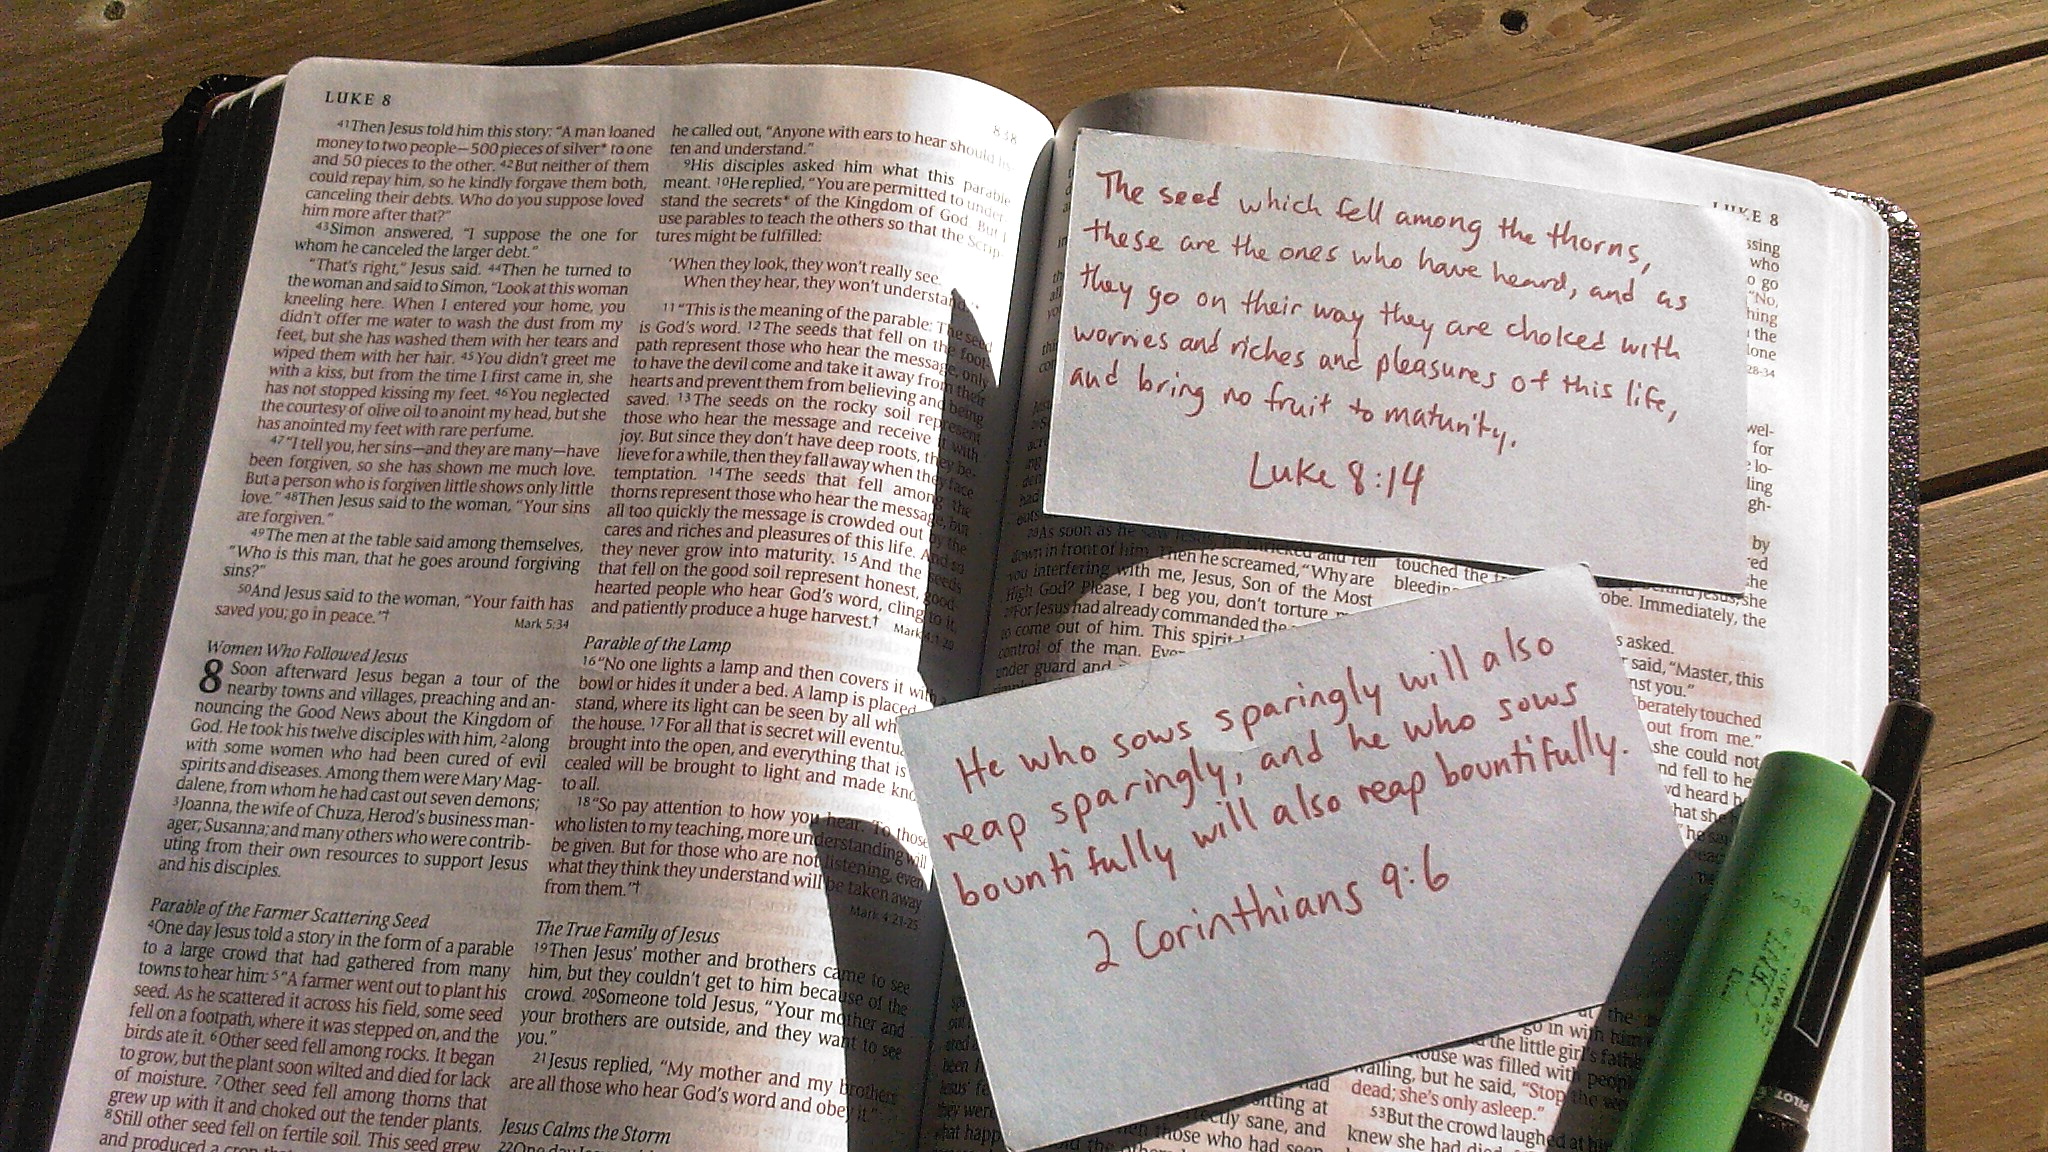 LUKE 8
41Then Jesus told him this story: “A man loaned
money to two people—500 pieces of silver* to one
and 50 pieces to the other. 42But neither of them
could repay him, so he kindly forgave them both,
canceling their debts. Who do you suppose loved
him more after that?”
43Simon answered, “I suppose the one for
whom he canceled the larger debt.”
“That’s right,” Jesus said. 44Then he turned to
the woman and said to Simon, “Look at this woman
kneeling here. When I entered your home, you
didn’t offer me water to wash the dust from my
feet, but she has washed them with her tears and
wiped them with her hair. 45You didn’t greet me
with a kiss, but from the time I first came in, she
has not stopped kissing my feet. 46You neglected
the courtesy of olive oil to anoint my head, but she
has anointed my feet with rare perfume.
47“I tell you, her sins—and they are many—have
been forgiven, so she has shown me much love.
But a person who is forgiven little shows only little
love.” 48Then Jesus said to the woman, “Your sins
are forgiven.”
49The men at the table said among themselves,
“Who is this man, that he goes around forgiving
sins?”
50And Jesus said to the woman, “Your faith has
saved you; go in peace.”†
Mark 5:34
Women Who Followed Jesus
8 Soon afterward Jesus began a tour of the
nearby towns and villages, preaching and an-
nouncing the Good News about the Kingdom of
God. He took his twelve disciples with him, 2along
with some women who had been cured of evil
spirits and diseases. Among them were Mary Mag-
dalene, from whom he had cast out seven demons;
3Joanna, the wife of Chuza, Herod’s business man-
ager; Susanna; and many others who were contrib-
uting from their own resources to support Jesus
and his disciples.
Parable of the Farmer Scattering Seed
4One day Jesus told a story in the form of a parable
to a large crowd that had gathered from many
towns to hear him: 5“A farmer went out to plant his
seed. As he scattered it across his field, some seed
fell on a footpath, where it was stepped on, and the
birds ate it. 6Other seed fell among rocks. It began
to grow, but the plant soon wilted and died for lack
of moisture. 7Other seed fell among thorns that
grew up with it and choked out the tender plants.
8Still other seed fell on fertile soil. This seed grew
and produced a crop
838
he called out, “Anyone with ears to hear should
ten and understand.”
9His disciples asked him what this parable
meant. 10He replied, “You are permitted to under-
stand the secrets* of the Kingdom of God. But I
use parables to teach the others so that the Scrip-
tures might be fulfilled:
‘When they look, they won’t really see.
When they hear, they won’t understand.’*
11“This is the meaning of the parable: The seed
is God’s word. 12The seeds that fell on the foot-
path represent those who hear the message, only
to have the devil come and take it away from their
hearts and prevent them from believing and being
saved. 13The seeds on the rocky soil represent
those who hear the message and receive it with
joy. But since they don’t have deep roots, they be-
lieve for a while, then they fall away when they face
temptation. 14The seeds that fell among the
thorns represent those who hear the message, but
all too quickly the message is crowded out by the
cares and riches and pleasures of this life. And so
they never grow into maturity. 15And the seeds
that fell on the good soil represent honest, good-
hearted people who hear God’s word, cling to it,
and patiently produce a huge harvest.†
Mark 4:1-20
Parable of the Lamp
16“No one lights a lamp and then covers it with
bowl or hides it under a bed. A lamp is placed
stand, where its light can be seen by all wh
the house. 17For all that is secret will eventua
brought into the open, and everything that is
cealed will be brought to light and made kno
to all.
18“So pay attention to how you hear. To those
who listen to my teaching, more understanding will
be given. But for those who are not listening, even
what they think they understand will be taken away
from them.”†
Mark 4:21-25
The True Family of Jesus
19Then Jesus’ mother and brothers came to see
him, but they couldn’t get to him because of the
crowd. 20Someone told Jesus, “Your mother and
your brothers are outside, and they want to see
you.”
21Jesus replied, “My mother and my brothers
are all those who hear God’s word and obey it.”
Jesus Calms the Storm
22One day
LUKE 8
The seed which fell among the thorns,
these are the ones who have heard, and as
they go on their way they are choked with
worries and riches and pleasures of this life,
and bring no fruit to maturity.
Luke 8:14
28As soon as he saw Jesus, he shrieked and fell
down in front of him. Then he screamed, “Why are
you interfering with me, Jesus, Son of the Most
High God? Please, I beg you, don’t torture
29For Jesus had already commanded the
to come out of him. This spirit
control of the man. Eve
under guard and
He who sows sparingly will also
reap sparingly, and he who sows
bountifully will also reap bountifully.
2 Corinthians 9:6
sitting at
sane, and
those who had seen
touched the
bleeding
robe. Immediately, the
asked.
said, “Master, this
you.”
berately touched
out from me.”
she could not
fell to he
heard h
go in with him
the little girl’s
house was filled with people
wailing, but he said, “Stop the
dead; she’s only asleep.”
53But the crowd laughed at him
knew she had died.
PILOT